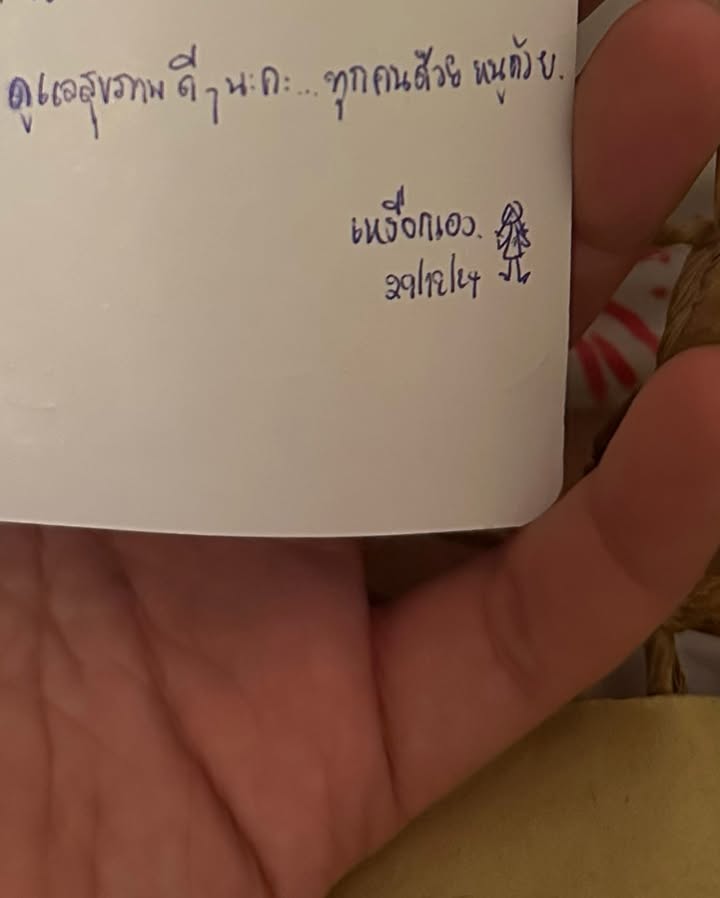 ดูแลสุขภาพ ดี ๆ นะคะ... ทุกคนด้วย หนูด้วย.
เหงือกเอง.
29/12/24